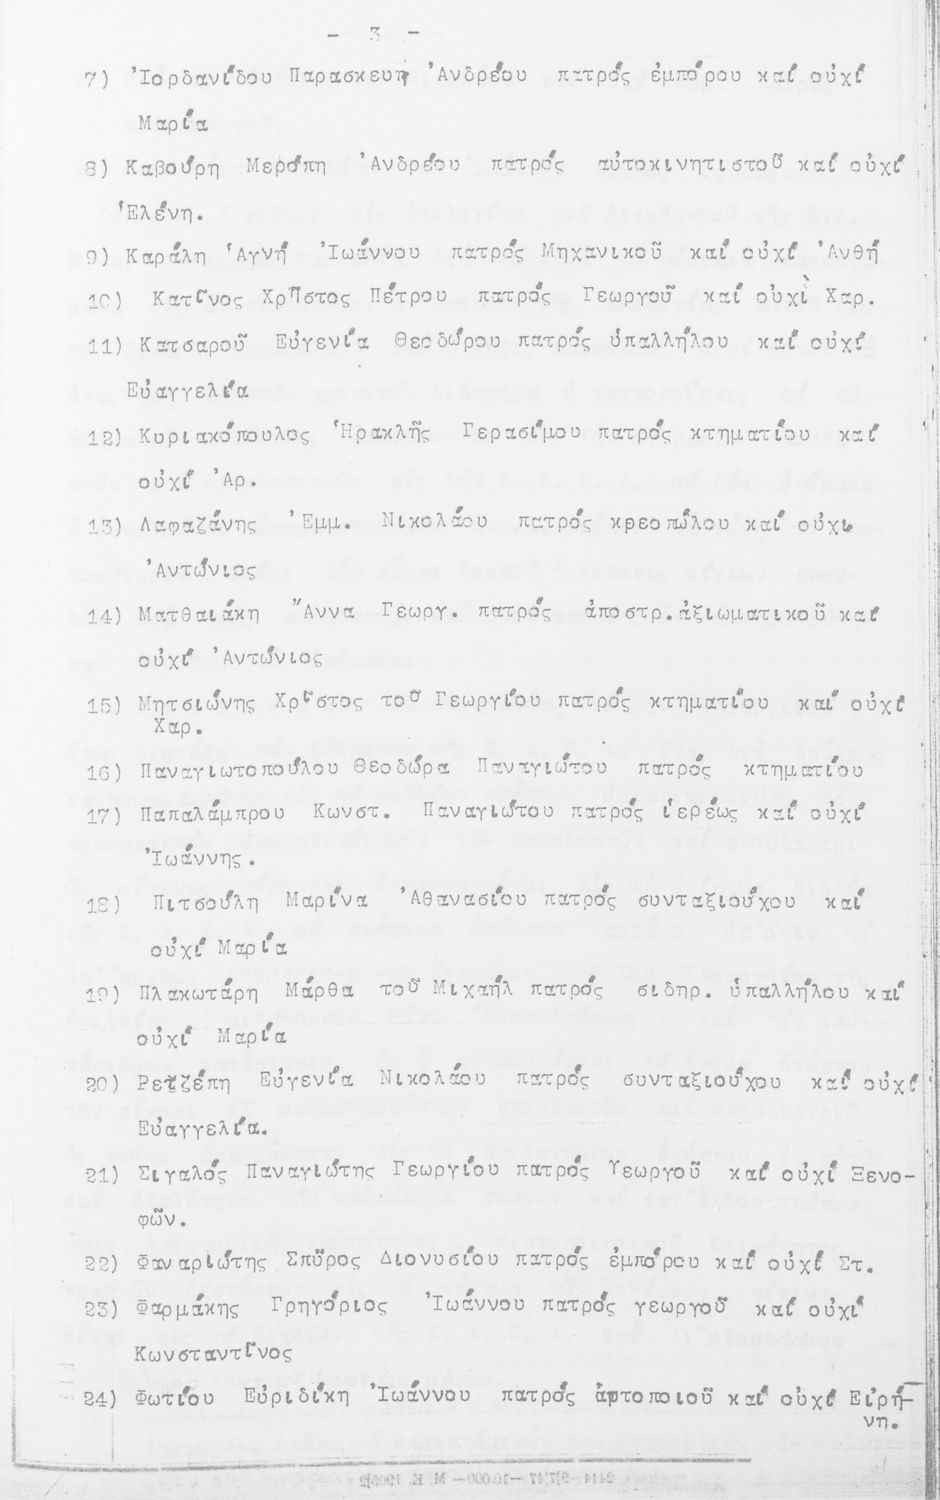 - 3 -
7) Ἰορδανίδου Παρασκευή Ἀνδρέου πατρός ἐμπόρου καί οὐχί
Μαρία
8) Καβούρη Μερόπη Ἀνδρέου πατρός αὐτοκινητιστοῦ καί οὐχί
Ἑλένη.
9) Καράλη Ἁγνή Ἰωάννου πατρός Μηχανικοῦ καί οὐχί Ἀνθή
10) Κατῖνος Χρῆστος Πέτρου πατρός Γεωργοῦ καί οὐχὶ Χαρ.
11) Κατσαροῦ Εὐγενία Θεοδώρου πατρός ὑπαλλήλου καί οὐχί
Εὐαγγελία
12) Κυριακόπουλος Ἡρακλῆς Γερασίμου πατρός κτηματίου καί
οὐχί Ἀρ.
13) Λαφαζάνης Ἐμμ. Νικολάου πατρός κρεοπώλου καί οὐχι
Ἀντώνιος
14) Ματθαιάκη Ἄννα Γεωργ. πατρός ἀποστρ.ἀξιωματικοῦ καί
οὐχί Ἀντώνιος
15) Μητσιώνης Χρῖστος τοῦ Γεωργίου πατρός κτηματίου καί οὐχί
Χαρ.
16) Παναγιωτοπούλου Θεοδώρα Παναγιώτου πατρός κτηματίου
17) Παπαλάμπρου Κωνστ. Παναγιώτου πατρός ἱερέως καί οὐχί
Ἰωάννης.
18) Πιτσούλη Μαρίνα Ἀθανασίου πατρός συνταξιούχου καί
οὐχί Μαρία
19) Πλακωτάρη Μάρθα τοῦ Μιχαήλ πατρός σιδηρ. ὑπαλλήλου καί
οὐχί Μαρία
20) Ρετζέπη Εὐγενία Νικολάου πατρός συνταξιούχου καί οὐχί
Εὐαγγελία.
21) Σιγαλός Παναγιώτης Γεωργίου πατρός Γεωργοῦ καί οὐχί Ξενο-
φῶν.
22) Φαναριώτης Σπῦρος Διονυσίου πατρός ἐμπόρου καί οὐχί Στ.
23) Φαρμάκης Γρηγόριος Ἰωάννου πατρός γεωργοῦ καί οὐχί
Κωνσταντῖνος
24) Φωτίου Εὐριδίκη Ἰωάννου πατρός ἀρτοποιοῦ καί οὐχί Εἰρή-
νη.